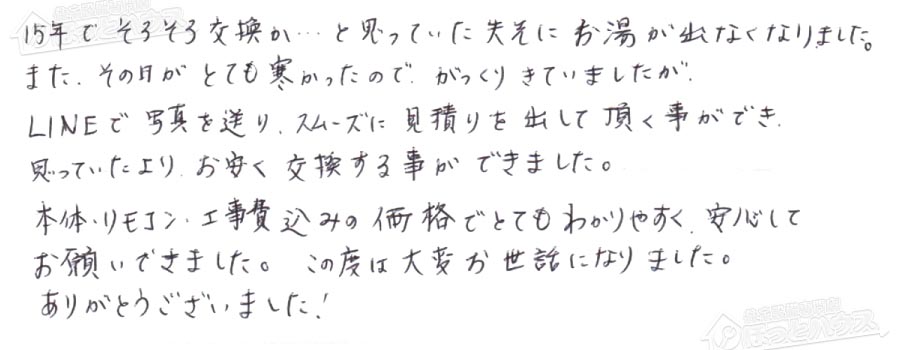 15年でそろそろ交換か…と思っていた矢先にお湯が出なくなりました。
また、その日がとても寒かったので、がっくりきていましたが、
LINEで写真を送り、スムーズに見積りを出して頂く事ができ、
思っていたより、お安く交換する事ができました。
本体・リモコン・工事費込みの価格でとてもわかりやすく、安心して
お願いできました。この度は大変お世話になりました。
ありがとうございました!
ほっとハウス